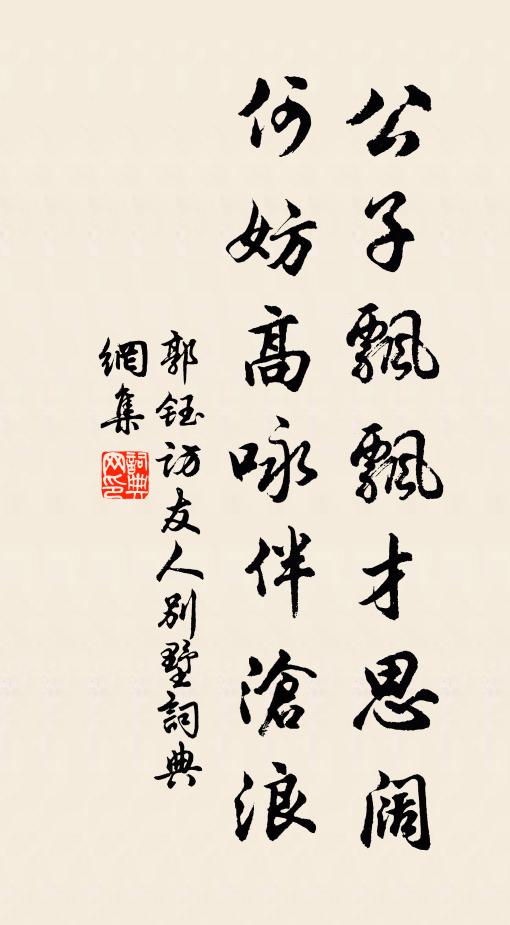 公子飄飄才思阔
何妨高咏伴滄浪
郭鈺访友人别墅詞典
網集
詞典网印